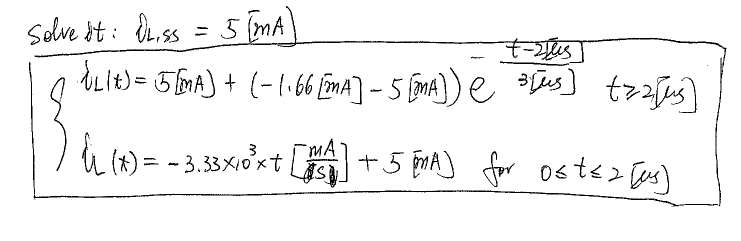 Solve it: i_{L,ss} = 5 [mA]
i_L(t) = 5 [mA] + (-1.66 [mA] - 5 [mA]) e^{-\frac{t-2[μs]}{3[μs]}} t ≥ 2 [μs]
i_L(t) = -3.33×10^3 × t [\frac{mA}{s}] + 5 [mA] for 0 ≤ t ≤ 2 [μs]